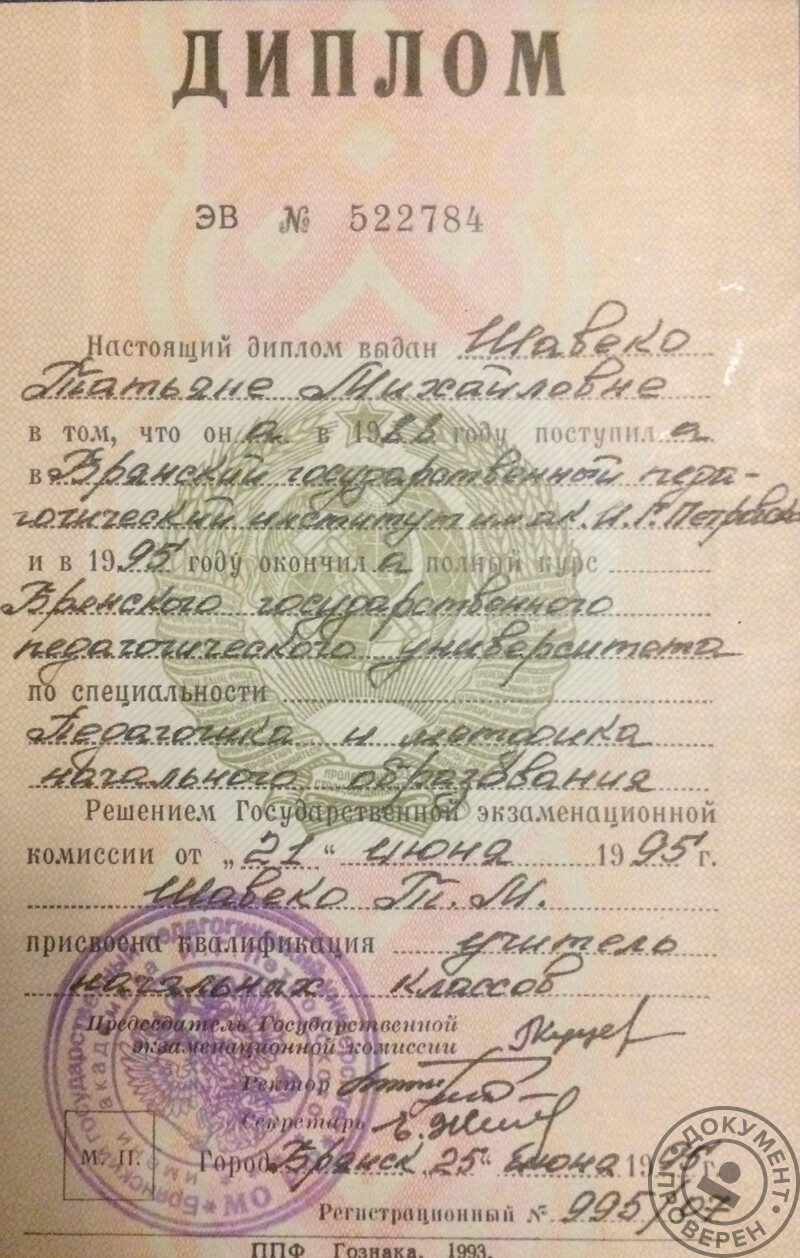 ДИПЛОМ
ЭВ № 522784
Настоящий диплом выдан Шавеко
Татьяне Михайловне
в том, что он а в 1988 году поступил а
в Брянский государственный педа-
гогический институт им. ак. И.Г. Петровск
и в 1995 году окончил а полный курс
Брянского государственного
педагогического университета
по специальности
Педагогика и методика
начального образования
Решением Государственной экзаменационной
комиссии от „21“ июня 1995 г.
Шавеко Т. М.
присвоена квалификация учитель
начальных классов
Председатель Государственной
экзаменационной комиссии
Ректор
Секретарь
М. П. Город Брянск „25“ июня 1995 г.
Регистрационный № 995/07
ППФ Гознака. 1993.
ДОКУМЕНТ ПРОВЕРЕН